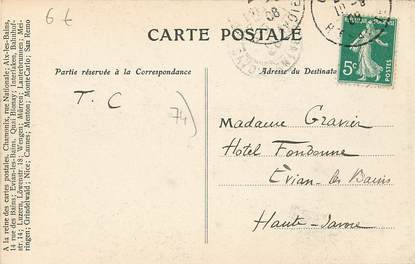 6 €
CARTE POSTALE
Partie réservée à la Correspondance
Adresse du Destinata
T. C
74)
Madame Gravier
Hôtel Fonbonne
Évian-les Bains
Haute-Savoie
5c
POSTES
08
A la reine des cartes postales, Chamonix, rue Nationale; Aix-les-Bains,
14 rue des Bains; Evian-les-Bains, Quai Blonay; Interlaken, Bahnhof-
str 14; Luzern, Löwenstr 18; Wengen; Mürren; Lauterbrunnen; Mei-
ringen; Grindelwald; Nice; Cannes; Menton; Monte Carlo; San Remo